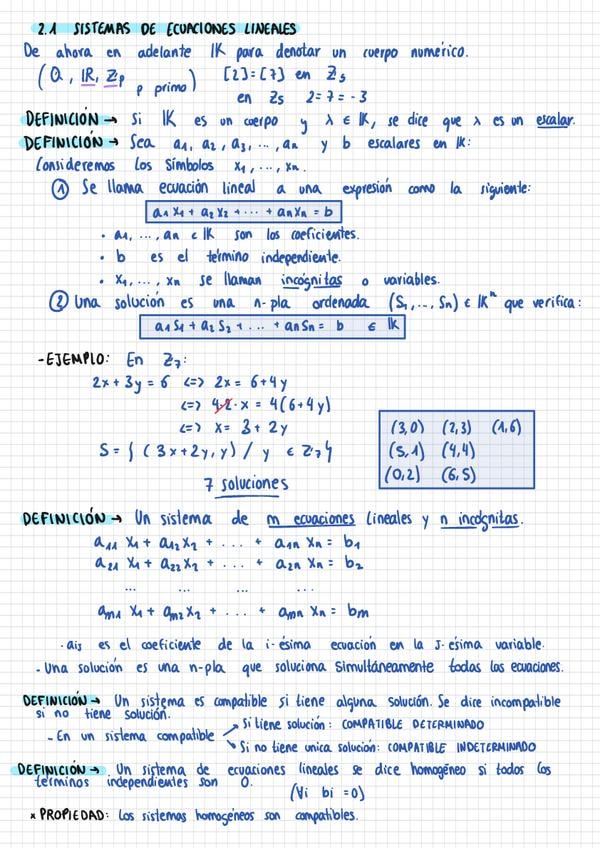 2.1 SISTEMAS DE ECUACIONES LINEALES
De ahora en adelante IK para denotar un cuerpo numérico.
(Q, IR, Zp p primo) [2]=[7] en Z5
en Z5 2=7=-3
DEFINICIÓN → Si IK es un cuerpo y λ ∈ IK, se dice que λ es un escalar.
DEFINICIÓN → Sea a1, a2, a3, ..., an y b escalares en IK:
Consideremos los símbolos x1, ..., xn.
① Se llama ecuación lineal a una expresión como la siguiente:
a1 x1 + a2 x2 + ... + an xn = b
· a1, ..., an ∈ IK son los coeficientes.
· b es el término independiente.
· x1, ..., xn se llaman incógnitas o variables.
② Una solución es una n-pla ordenada (S1, ..., Sn) ∈ IKⁿ que verifica:
a1 S1 + a2 S2 + ... + an Sn = b ∈ IK
-EJEMPLO: En Z7:
2x + 3y = 6 <=> 2x = 6+4y
<=> 4·2·x = 4(6+4y)
<=> x = 3 + 2y
S = { (3x+2y, y) / y ∈ Z7 }
7 soluciones
(3,0) (2,3) (1,6)
(5,1) (4,4)
(0,2) (6,5)
DEFINICIÓN → Un sistema de m ecuaciones lineales y n incógnitas.
a11 x1 + a12 x2 + ... + a1n xn = b1
a21 x1 + a22 x2 + ... + a2n xn = b2
... ... ... ...
am1 x1 + am2 x2 + ... + amn xn = bm
· aij es el coeficiente de la i-ésima ecuación en la J-ésima variable.
- Una solución es una n-pla que soluciona simultáneamente todas las ecuaciones.
DEFINICIÓN → Un sistema es compatible si tiene alguna solución. Se dice incompatible
si no tiene solución.
- En un sistema compatible
→ Si tiene solución: COMPATIBLE DETERMINADO
→ Si no tiene unica solución: COMPATIBLE INDETERMINADO
DEFINICIÓN → Un sistema de ecuaciones lineales se dice homogéneo si todos los
términos independientes son 0.
(∀i bi = 0)
* PROPIEDAD: Los sistemas homogéneos son compatibles.